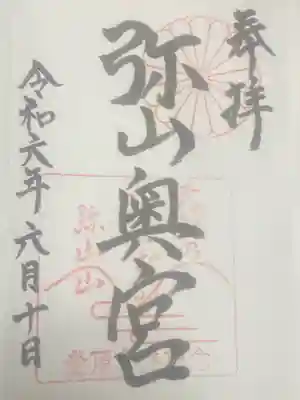 奉拝
弥山奥宮
令和六年六月十日
弥山